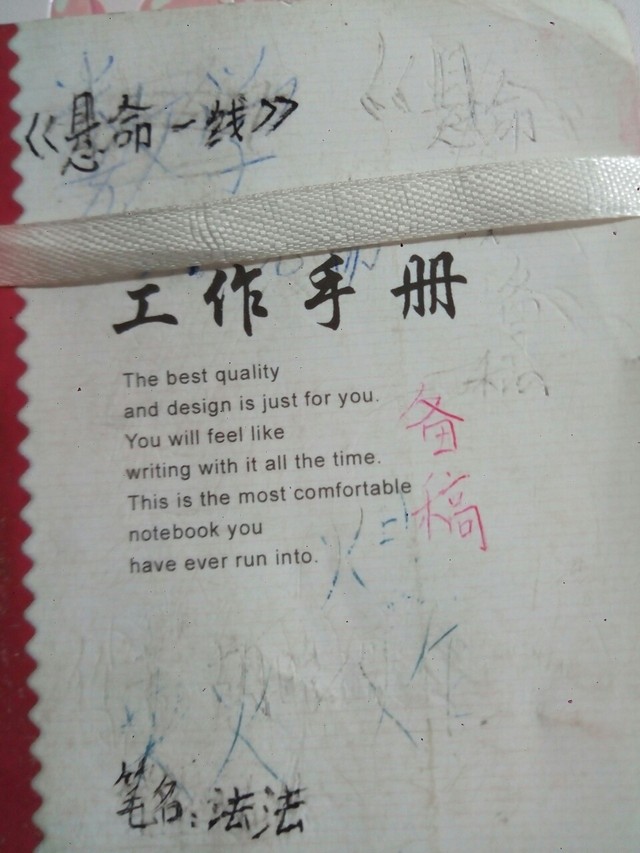 《悬命一线》
《悬命
工作手册
The best quality
and design is just for you.
You will feel like
writing with it all the time.
This is the most comfortable
notebook you
have ever run into.
备稿
笔名:法法